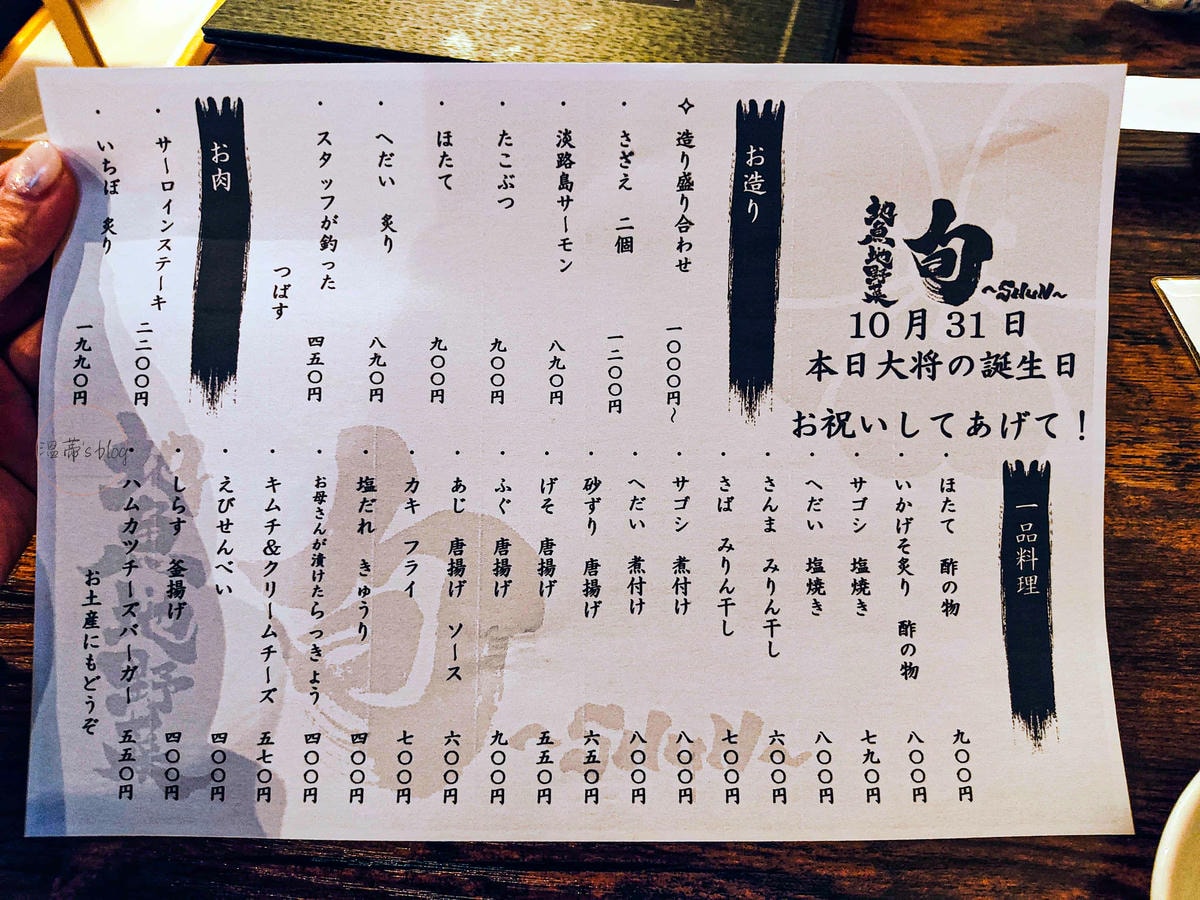 旬
~SHUN~
魚地野菜
10月31日
本日大将の誕生日
お祝いしてあげて！
お造り
✧ 造り盛り合わせ 一〇〇〇円~
・ さざえ 二個 一二〇〇円
・ 淡路島サーモン 八九〇円
・ たこぶつ 九〇〇円
・ ほたて 九〇〇円
・ へだい 炙り 八九〇円
・ スタッフが釣った 四五〇円
つばす
お肉
・ サーロインステーキ 二二〇〇円
・ いちぼ 炙り 一九九〇円
一品料理
・ ほたて 酢の物 九〇〇円
・ いかげそ炙り 酢の物 八〇〇円
・ サゴシ 塩焼き 七九〇円
・ へだい 塩焼き 八〇〇円
・ さんま みりん干し 六〇〇円
・ さば みりん干し 七〇〇円
・ サゴシ 煮付け 八〇〇円
・ へだい 煮付け 八〇〇円
・ 砂ずり 唐揚げ 六五〇円
・ げそ 唐揚げ 五五〇円
・ ふぐ 唐揚げ 九〇〇円
・ あじ 唐揚げ ソース 六〇〇円
・ カキ フライ 七〇〇円
・ 塩だれ きゅうり 四〇〇円
・ お母さんが漬けたらっきょう 四〇〇円
・ キムチ＆クリームチーズ 五七〇円
・ えびせんべい 四〇〇円
・ しらす 釜揚げ 四〇〇円
・ ハムカツチーズバーガー 五五〇円
お土産にもどうぞ
旬
~SHUN~
魚地野菜
溫蒂's blog